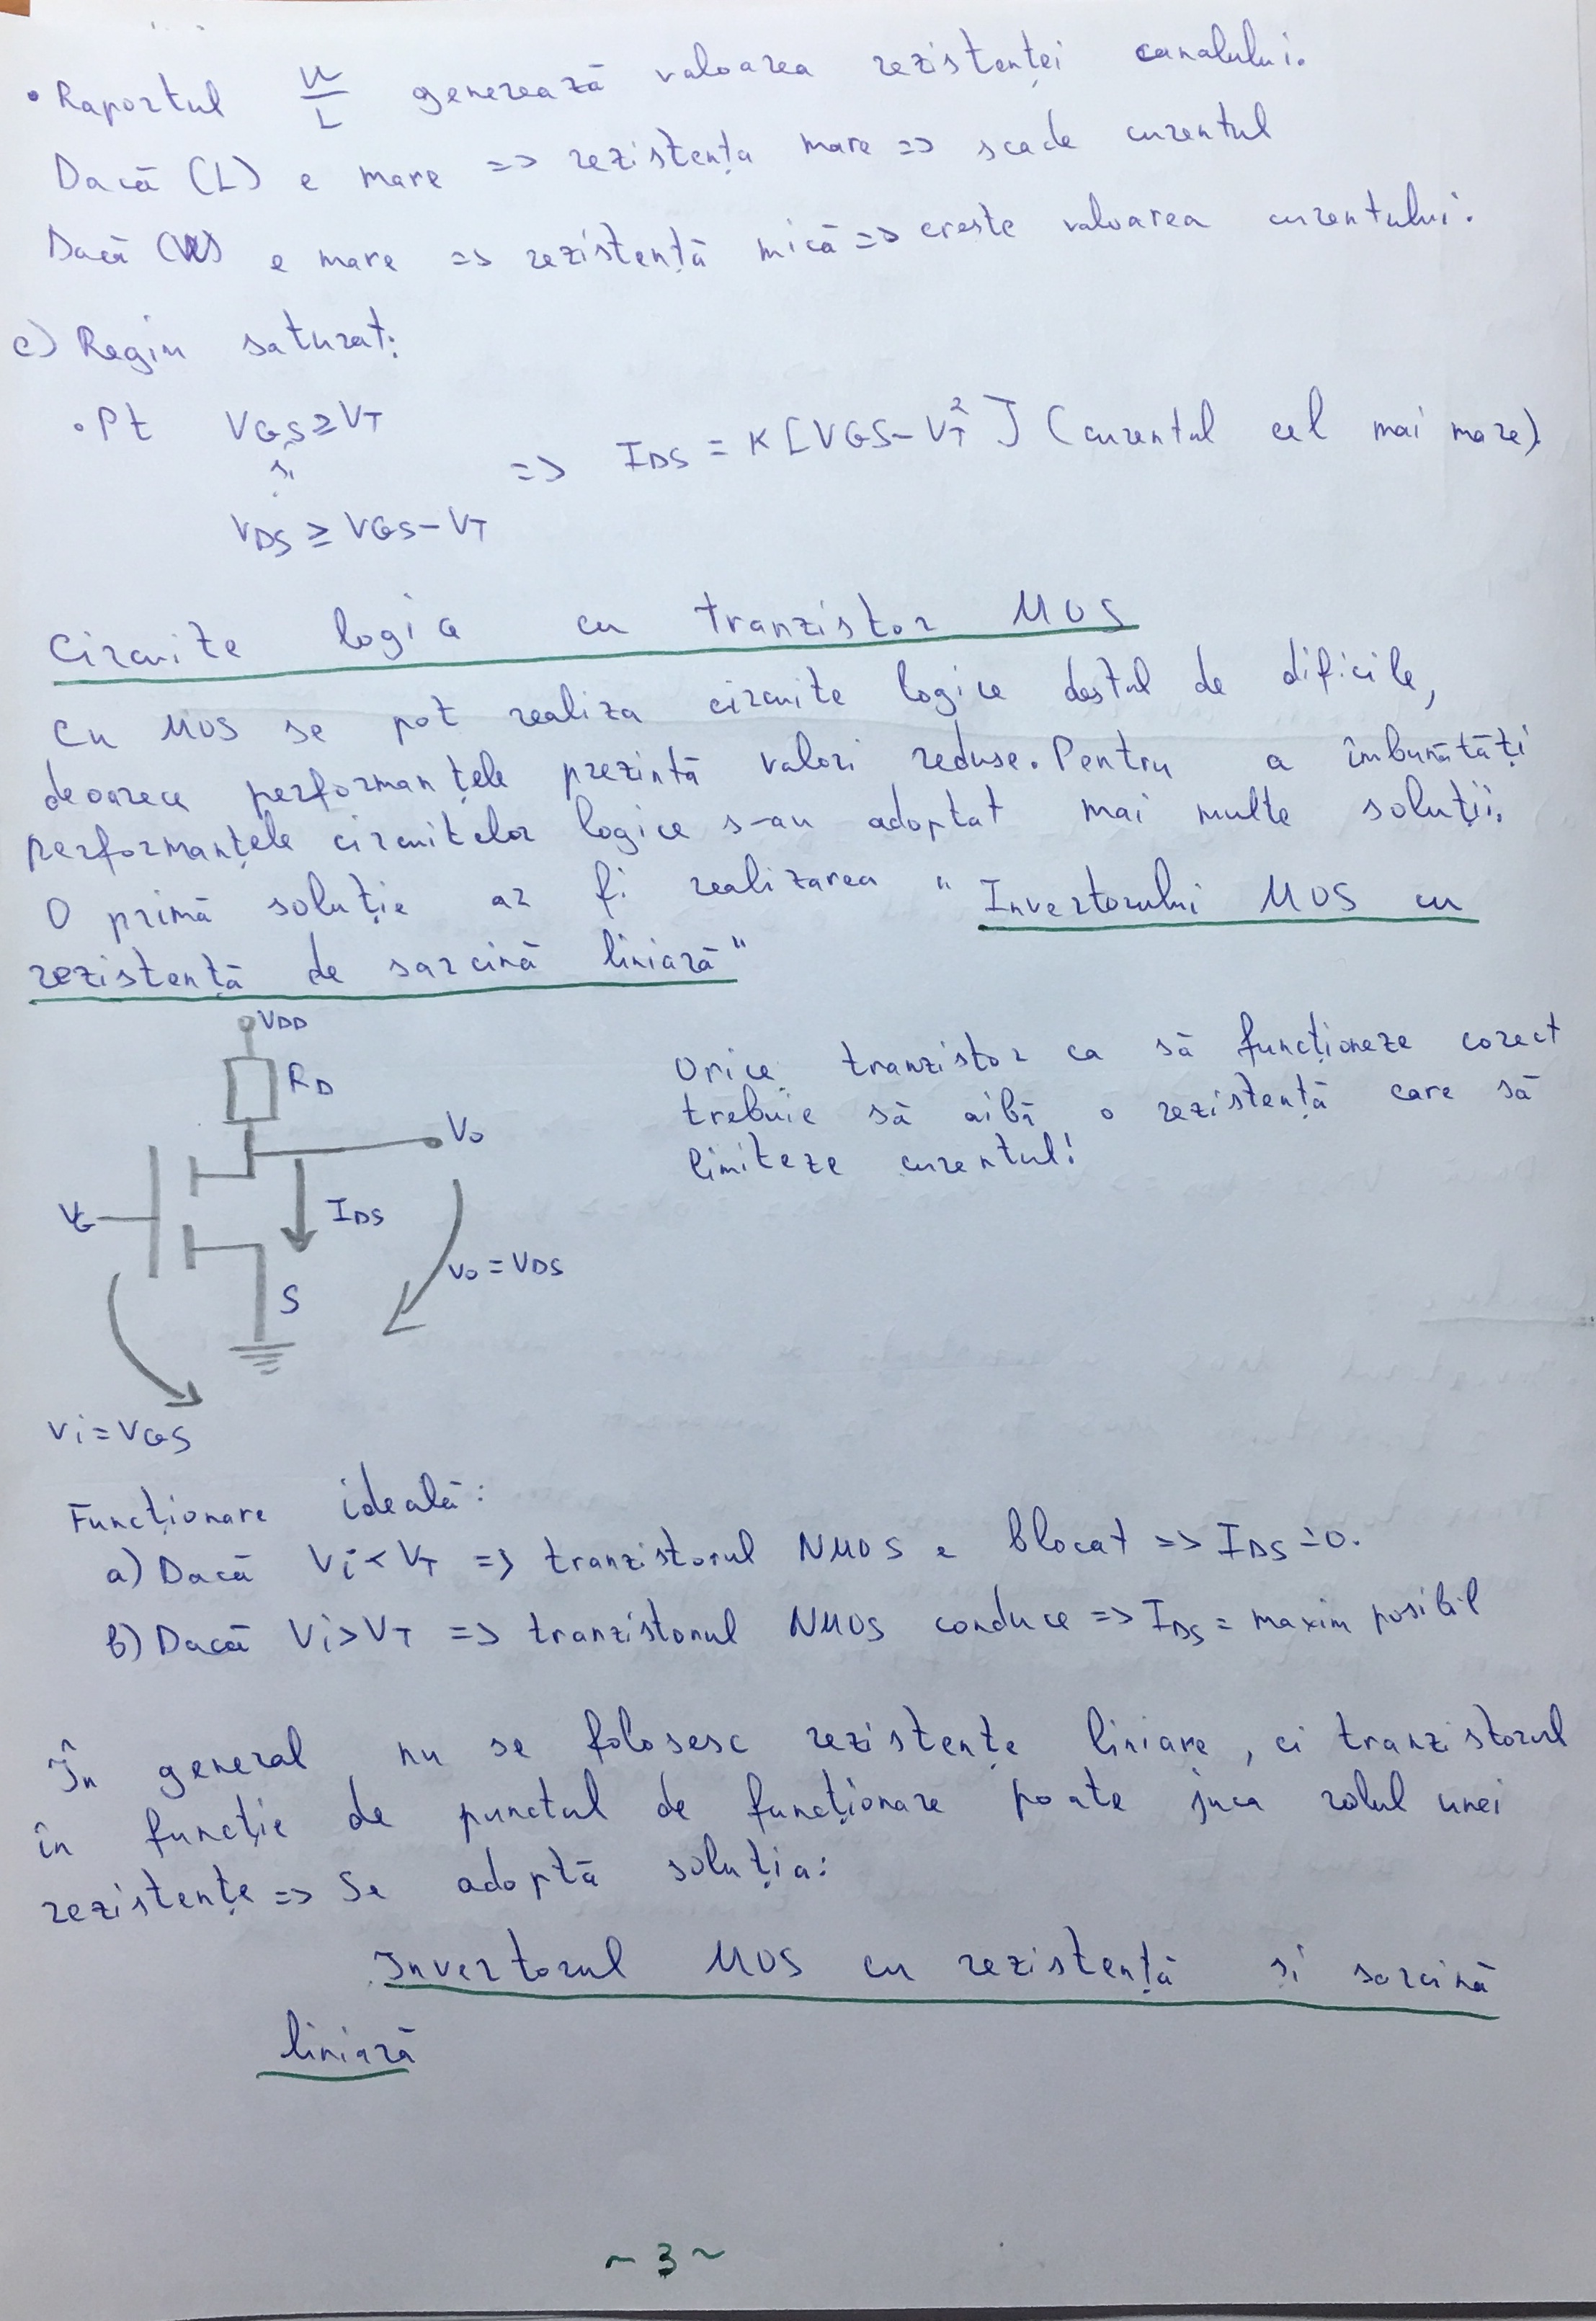 • Raportul W/L generează valoarea rezistenței canalului.
Dacă (L) e mare => rezistența mare => scade curentul
Dacă (W) e mare => rezistență mică => crește valoarea curentului.
c) Regim saturat:
• Pt VGS ≥ VT
și => IDS = K [VGS - VT²] (curentul cel mai mare).
VDS ≥ VGS - VT
Circuite logice cu tranzistor MOS
Cu MOS se pot realiza circuite logice destul de dificile,
deoarece performanțele prezintă valori reduse. Pentru a îmbunătăți
performanțele circuitelor logice s-au adoptat mai multe soluții.
O primă soluție ar fi realizarea "Invertorului MOS cu
rezistență de sarcină liniară"
VDD
RD
Vo
VG
IDS
Vo = VDS
S
Vi = VGS
Orice tranzistor ca să funcționeze corect
trebuie să aibă o rezistență care să
limiteze curentul!
Funcționare ideală:
a) Dacă Vi < VT => tranzistorul NMOS e blocat => IDS = 0.
b) Dacă Vi > VT => tranzistorul NMOS conduce => IDS = maxim posibil
În general nu se folosesc rezistențe liniare, ci tranzistorul
în funcție de punctul de funcționare poate juca rolul unei
rezistențe => Se adoptă soluția:
Invertorul MOS cu rezistență și sarcină
liniară
~ 3 ~